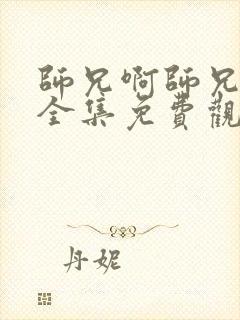 師兄啊師兄
全集免費觀
丹妮